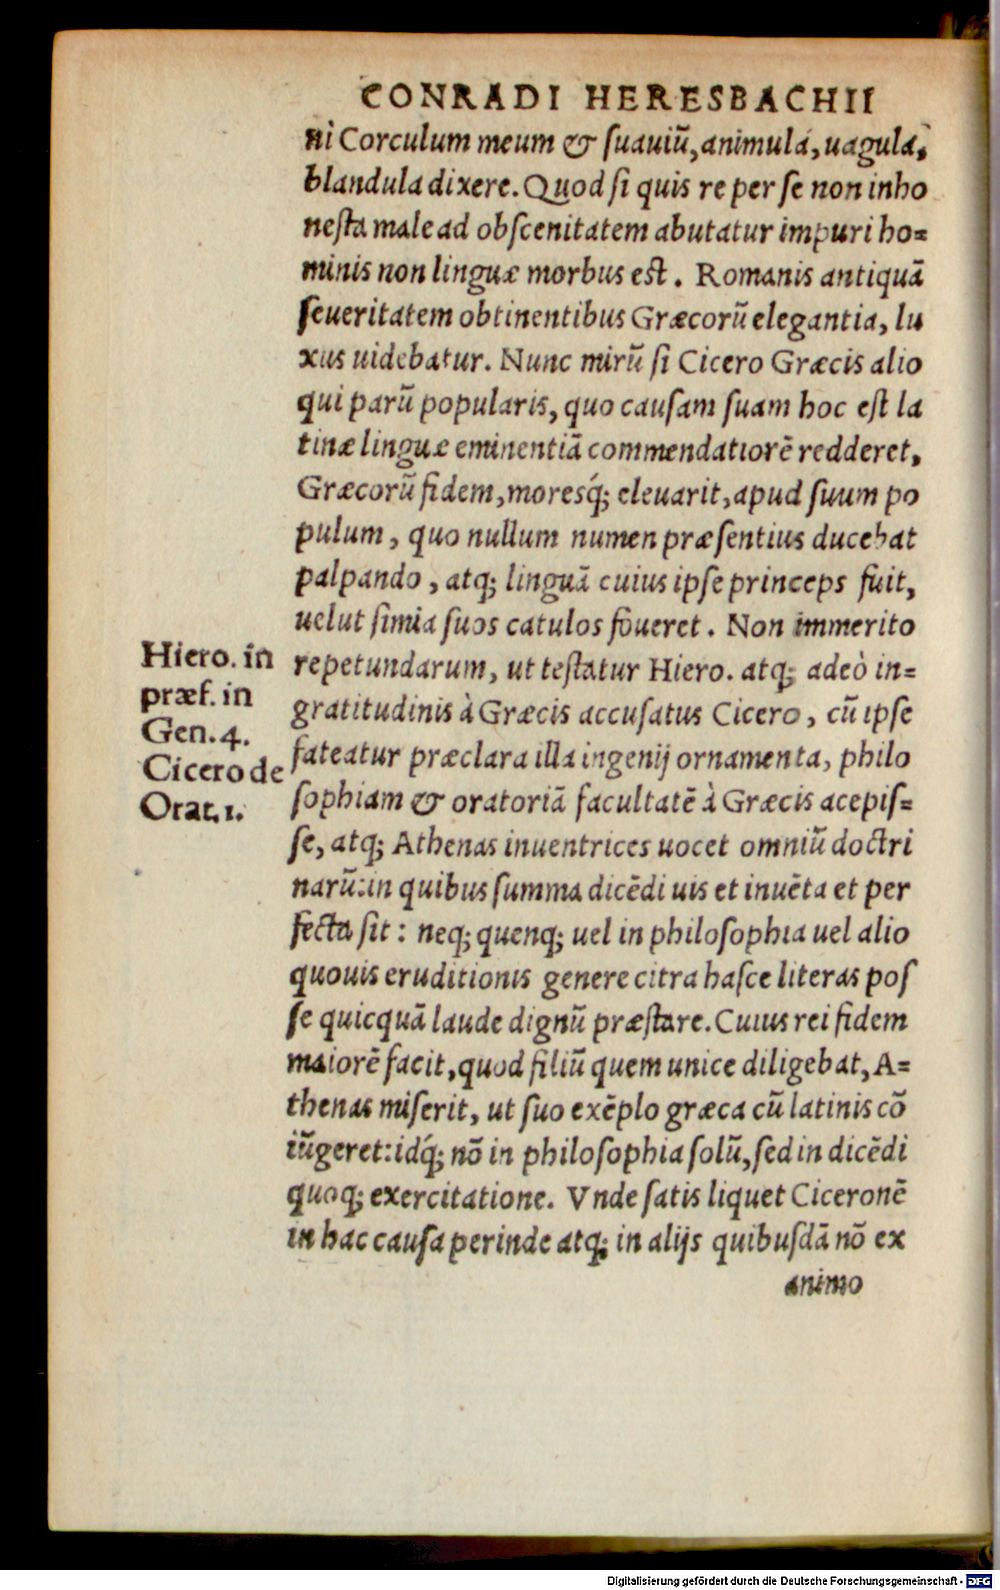 CONRADI HERESBACHII
ni Corculum meum & suauiũ, animula, uagula,
blandula dixere. Quod si quis re per se non inho
nesta male ad obscenitatem abutatur impuri ho=
minis non linguæ morbus est. Romanis antiquã
seueritatem obtinentibus Græcorũ elegantia, lu
xus uidebatur. Nunc mirũ si Cicero Græcis alio
qui parũ popularis, quo causam suam hoc est la
tinæ linguæ eminentiã commendatiorẽ redderet,
Græcorũ fidem, moresq́; eleuarit, apud suum po
pulum, quo nullum numen præsentius ducebat
palpando, atq; linguã cuius ipse princeps fuit,
uelut simia suos catulos foueret. Non immerito
repetundarum, ut testatur Hiero. atq; adeò in=
gratitudinis à Græcis accusatus Cicero, cũ ipse
fateatur præclara illa ingenij ornamenta, philo
sophiam & oratoriã facultatẽ à Græcis acepis=
se, atq; Athenas inuentrices uocet omniũ doctri
narũ: in quibus summa dicẽdi uis et inuẽta et per
fecta sit: neq; quenq; uel in philosophia uel alio
quouis eruditionis genere citra hasce literas pos
se quicquã laude dignũ præstare. Cuius rei fidem
maiorẽ facit, quod filiũ quem unice diligebat, A=
thenas miserit, ut suo exẽplo græca cũ latinis cõ
iũgeret: idq́; nõ in philosophia solũ, sed in dicẽdi
quoq; exercitatione. Vnde satis liquet Ciceronẽ
in hac causa perinde atq; in alijs quibusdã nõ ex
animo
Hiero. in
præf. in
Gen. 4.
Cicero de
Orat. 1.
Digitalisierung gefördert durch die Deutsche Forschungsgemeinschaft - DFG